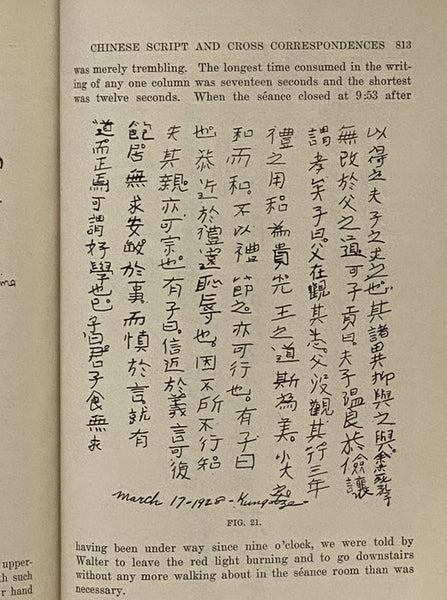 CHINESE SCRIPT AND CROSS CORRESPONDENCES 813
was merely trembling. The longest time consumed in the writ-
ing of any one column was seventeen seconds and the shortest
was twelve seconds. When the séance closed at 9:53 after
以得之夫子之夫之也其諸異抑與之與
無改於父之道可子貢曰。夫子溫良於儉讓
謂孝矣子曰。父在觀其志。父沒觀其行。三年
禮之用和為貴先王之道斯為美。小大
和而和。不以禮節之。亦可行也。有子曰
也。恭近於禮遠恥辱也。因不所不行和
失其親。亦可宗也。有子曰。信近於義言可復
飽居無求安敏於事而慎於言就有
道而正焉可謂好學也已。子曰。君子食無求
March 17-1928-Kung-tze
FIG. 21.
having been under way since nine o'clock, we were told by
Walter to leave the red light burning and to go downstairs
without any more walking about in the séance room than was
necessary.
upper-
th such
r hand